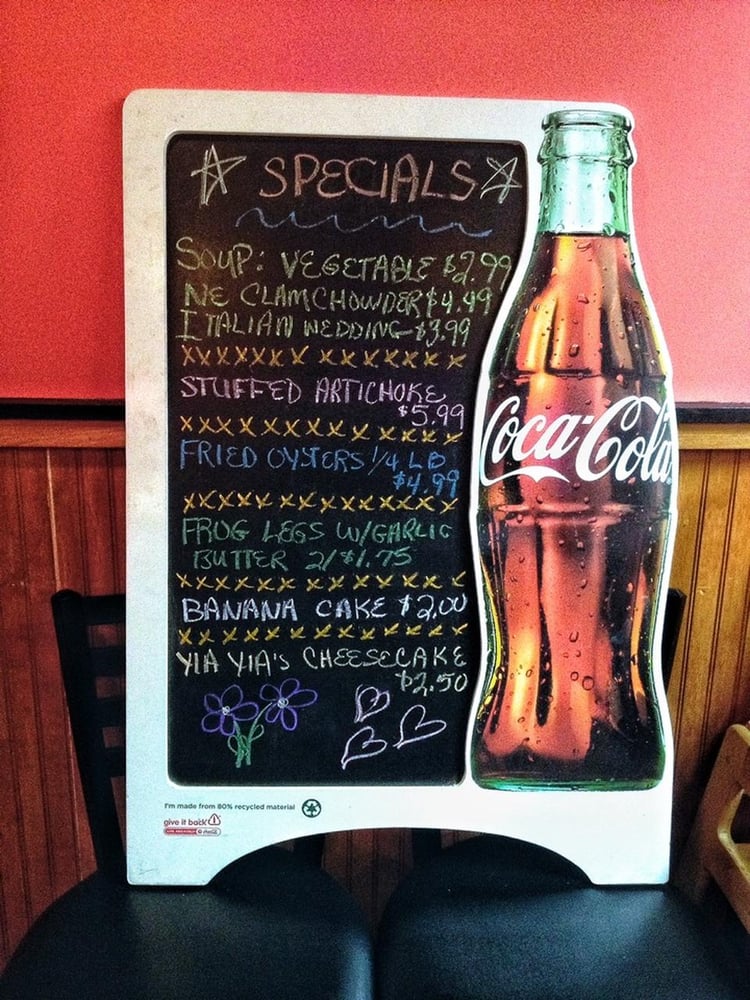 SPECIALS
SOUP: VEGETABLE $2.99
NE CLAMCHOWDER $4.99
ITALIAN WEDDING $3.99
xxxxxxx xxxxxxx
STUFFED ARTICHOKE
$5.99
xxxxxxxxxxxxxx
FRIED OYSTERS 1/4 LB
$4.99
xxxxxxxxxxxxxx
FROG LEGS W/GARLIC
BUTTER 2/$1.75
xxxxxxxxxxxxxx
BANANA CAKE $2.00
xxxxxxxxxxxxxx
YIA YIA'S CHEESECAKE
$2.50
Coca-Cola
I'm made from 80% recycled material
give it back